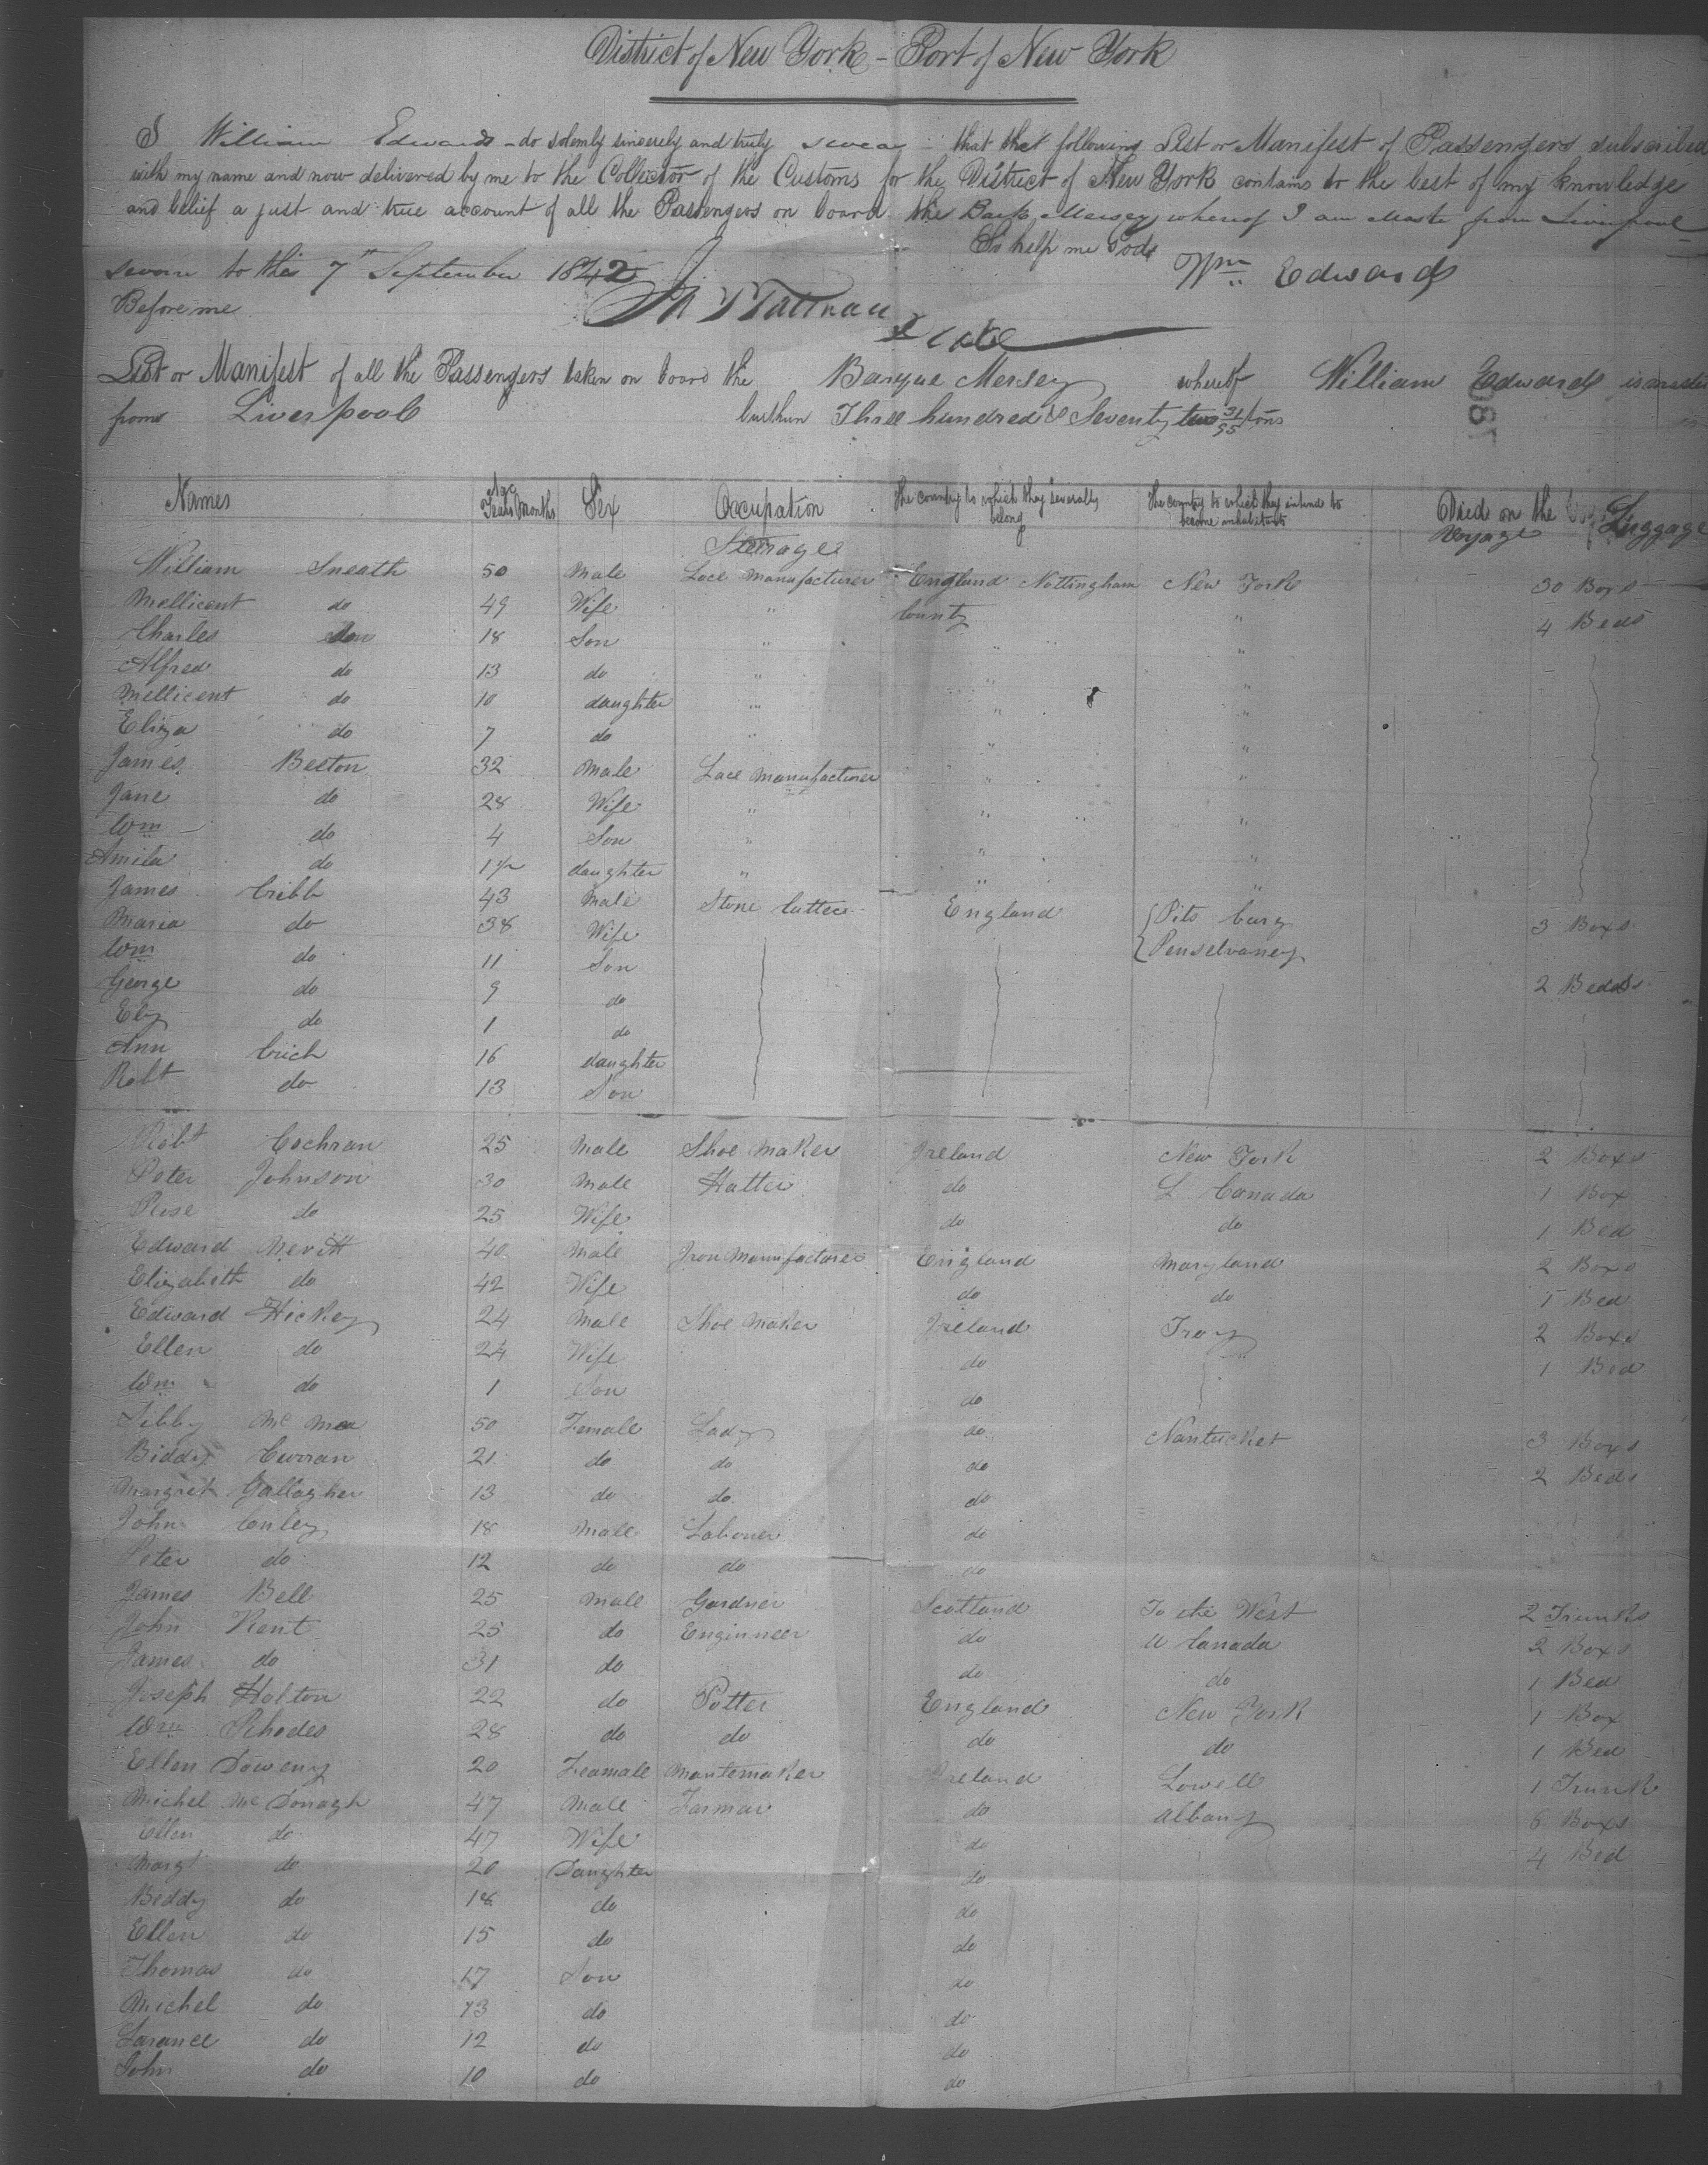 District of New York - Port of New York
I William Edwards - do solemly sincerely and truly swear - that the following List or Manifest of Passengers subscribed
with my name and now delivered by me to the Collector of the Customs for the District of New York contains to the best of my knowledge
and belief a just and true account of all the Passengers on board the Bark Mersey whereof I am Master from Liverpool
So help me God
Sworn to this 7th September 1842 Wm Edwards
Before me
List or Manifest of all the Passengers taken on board the Barque Mersey whereof William Edwards is master
from Liverpool burthen Three hundred & Seventy two 31/95 tons
Names Age Years Months Sex Occupation The country to which they severally belong The country to which they intend to become inhabitants Died on the Voyage Luggage
Steerage
William Sneath 50 Male Lace Manufacturer England Nottingham New York 30 Boxs
Mellicent do 49 Wife " County " 4 Beds
Charles 18 Son " " "
Alfred do 13 do " " "
Mellicent do 10 daughter " " "
Eliza do 7 do " " "
James Beeton 32 Male Lace Manufacturer " "
Jane do 28 Wife " " "
Wm do 4 Son " " "
Amila do 1 1/2 daughter " " "
James Cribb 43 Male Stone Cutter England Pitsburg 3 Boxs
Maria do 38 Wife Penselvaney
Wm do 11 Son
George do 9 do 2 Bedds
Ely do 1 do
Ann Crich 16 daughter
Robt do 13 Son
Robt Cochran 25 Male Shoe Maker Ireland New York 2 Boxs
Peter Johnson 30 Male Hatter do L Canada 1 Box
Rose do 25 Wife do do 1 Bed
Edward Meritt 40 Male Iron Manufacturer England Maryland 2 Boxs
Elizabeth do 42 Wife do do 1 Bed
Edward Hickey 24 Male Shoe Maker Ireland Troy 2 Boxs
Ellen do 24 Wife do 1 Bed
Wm do 1 Son do
Sibby Mc 50 Female Lady do Nantucket 3 Boxs
Biddy Curran 21 do do do 2 Beds
Margret Gallagher 13 do do do
John Conley 18 Male Labourer do
Peter do 12 do do do
James Bell 25 Male Gardner Scotland To the West 2 Trunks
John Kent 25 do Enginneer do U Canada 2 Boxs
James do 31 do do do 1 Bed
Joseph Holton 22 do Potter England New York 1 Box
Wm Rhodes 28 do do do do 1 Bed
Ellen Doweny 20 Feamale Mantemaker Ireland Lowell 1 Trunk
Michel McDonagh 47 Male Farmar do Albany 6 Boxs
Ellen do 47 Wife do 4 Bed
Margt do 20 Daughter do
Beddy do 18 do do
Ellen do 15 do do
Thomas do 17 Son do
Michel do 13 do do
Larance do 12 do do
John do 10 do do